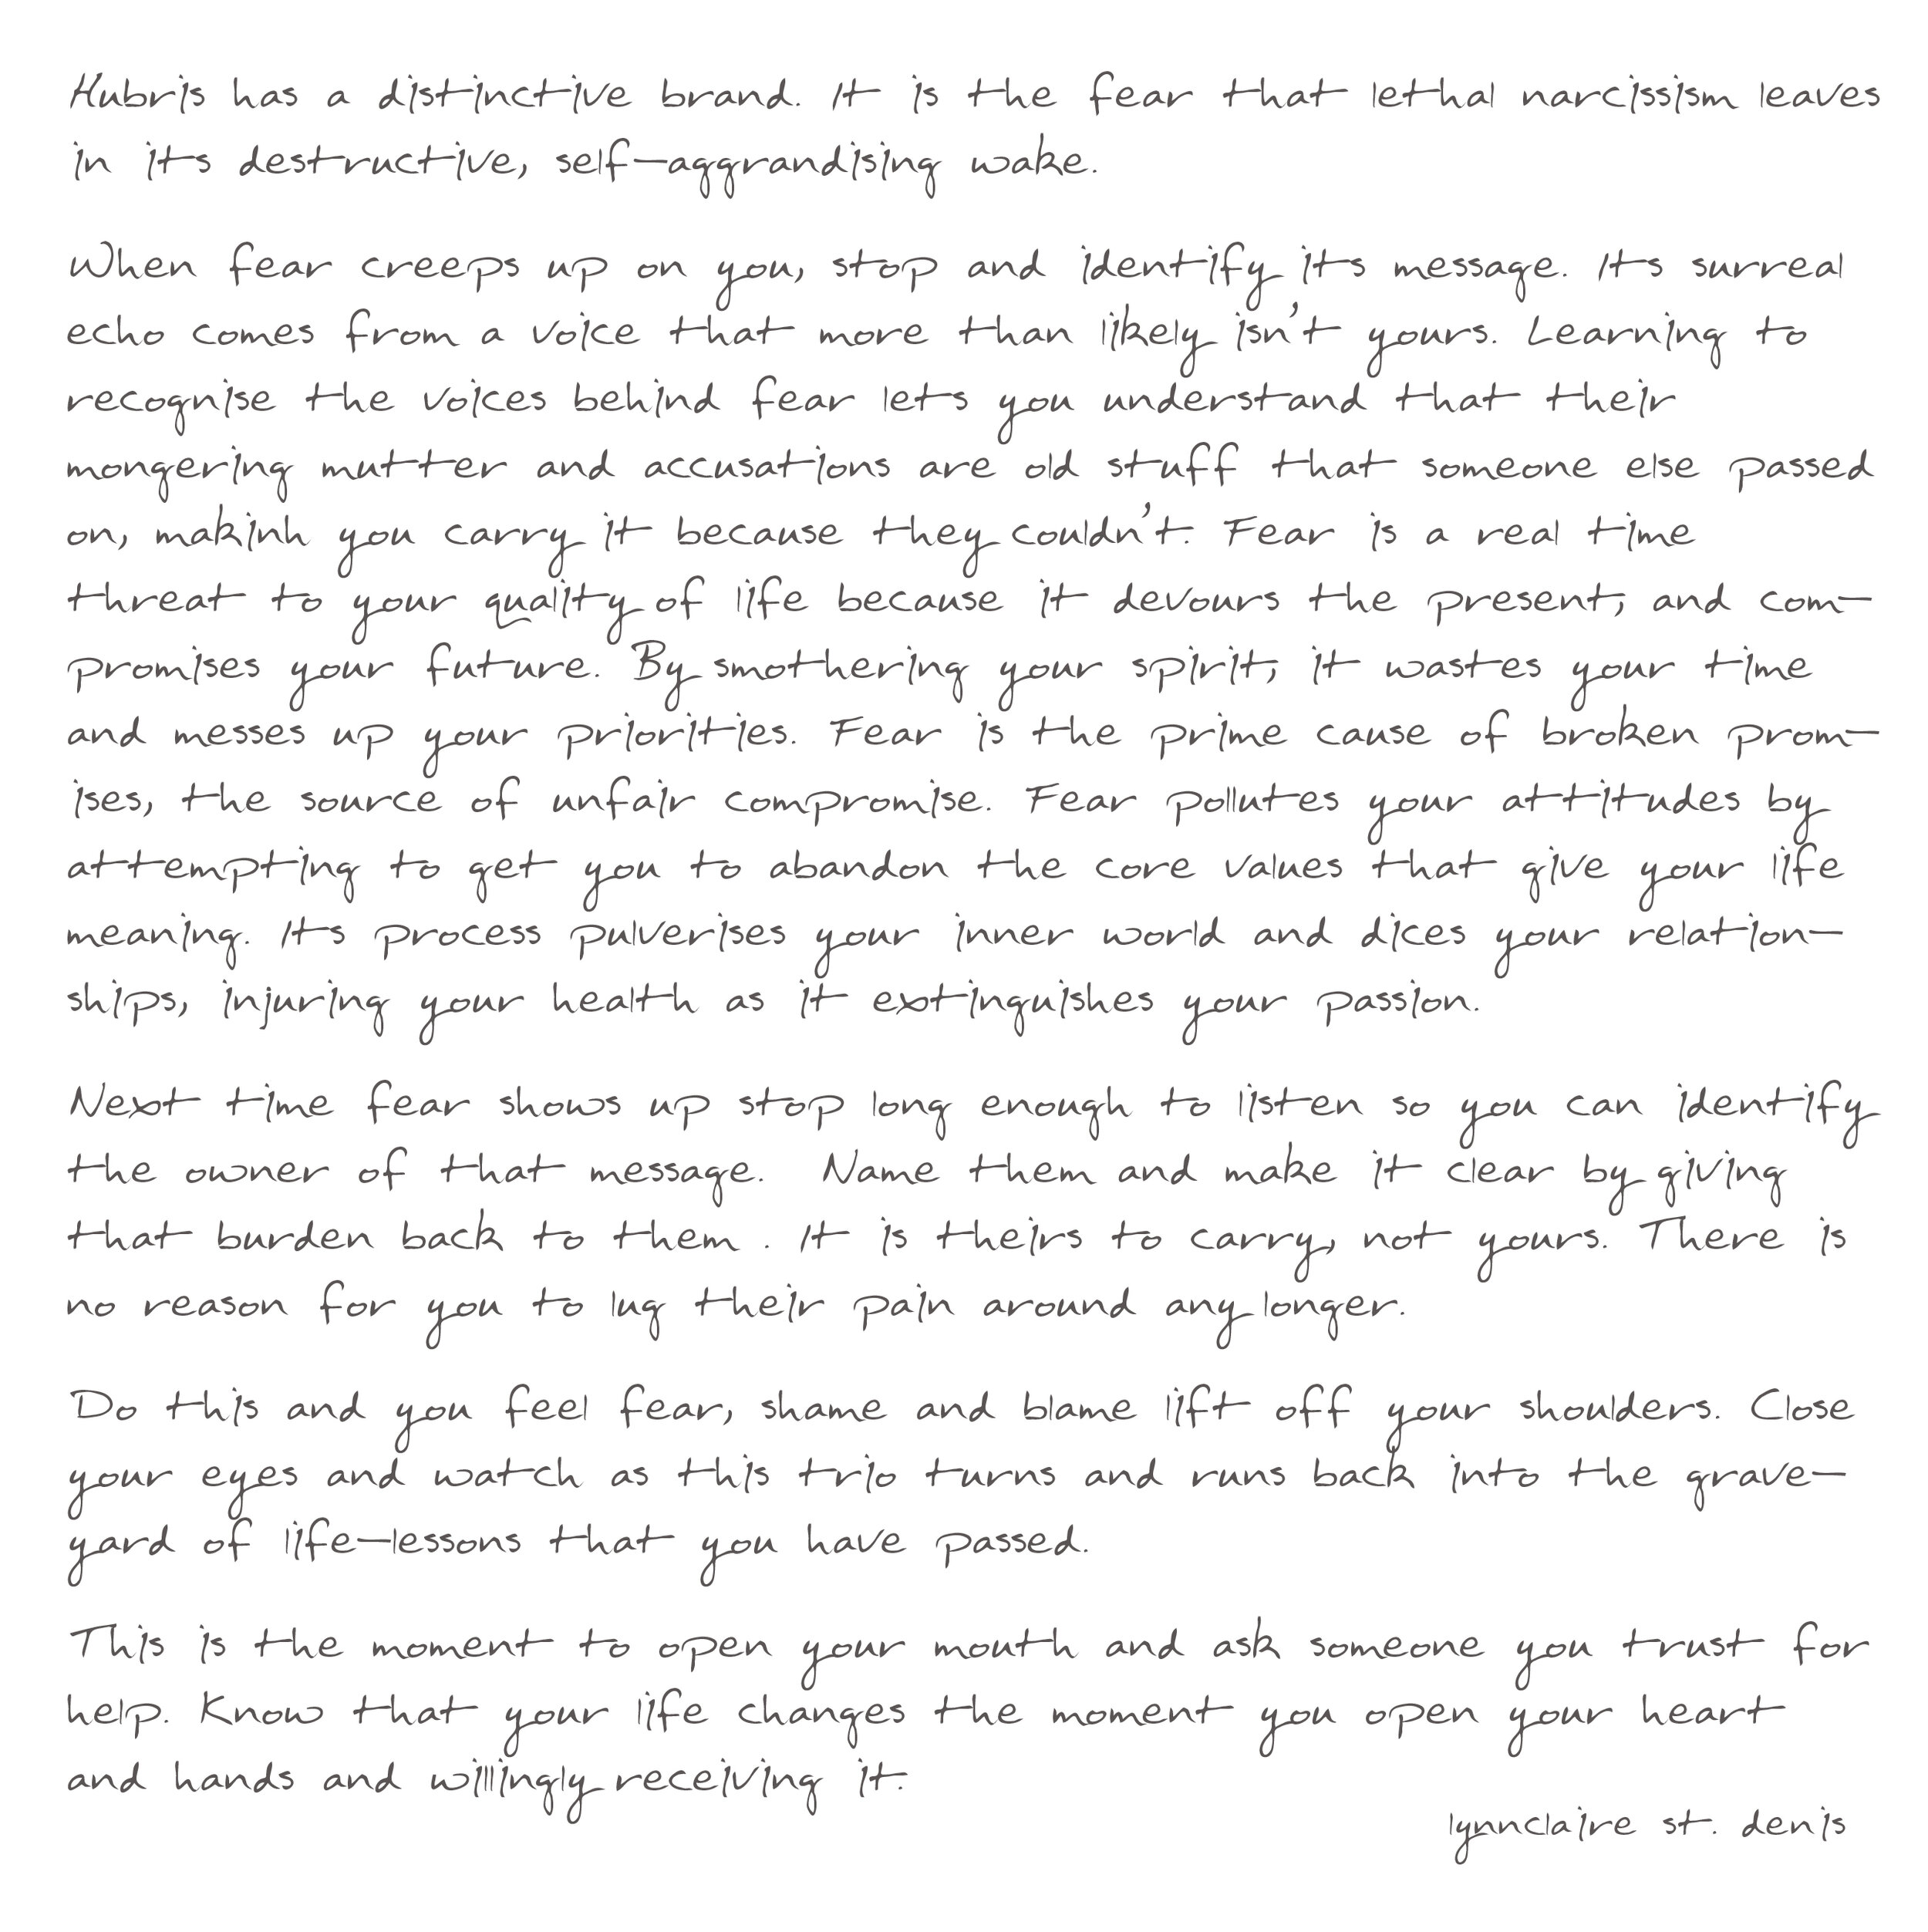 Hubris has a distinctive brand. It is the fear that lethal narcissism leaves
in its destructive, self-aggrandising wake.
When fear creeps up on you, stop and identify its message. Its surreal
echo comes from a voice that more than likely isn't yours. Learning to
recognise the voices behind fear lets you understand that their
mongering mutter and accusations are old stuff that someone else passed
on, makinh you carry it because they couldn't. Fear is a real time
threat to your quality of life because it devours the present, and com-
promises your future. By smothering your spirit, it wastes your time
and messes up your priorities. Fear is the prime cause of broken prom-
ises, the source of unfair compromise. Fear pollutes your attitudes by
attempting to get you to abandon the core values that give your life
meaning. Its process pulverises your inner world and dices your relation-
ships, injuring your health as it extinguishes your passion.
Next time fear shows up stop long enough to listen so you can identify
the owner of that message.  Name them and make it clear by giving
that burden back to them . It is theirs to carry, not yours. There is
no reason for you to lug their pain around any longer.
Do this and you feel fear, shame and blame lift off your shoulders. Close
your eyes and watch as this trio turns and runs back into the grave-
yard of life-lessons that you have passed.
This is the moment to open your mouth and ask someone you trust for
help. Know that your life changes the moment you open your heart
and hands and willingly receiving it.
lynnclaire st. denis